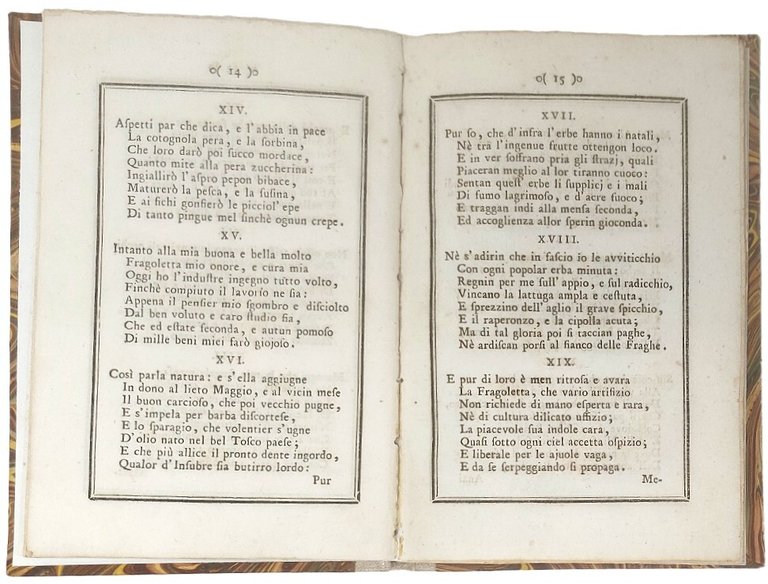 o( 14 )o
XIV.
Aſpetti par che dica, e l'abbia in pace
La cotognola pera, e la ſorbina,
Che loro darò poi ſucco mordace,
Quanto mite alla pera zuccherina:
Ingiallirò l'aſpro pepon bibace,
Maturerò la peſca, e la ſuſina,
E ai fichi gonfierò le picciol' epe
Di tanto pingue mel finchè ognun crepe.
XV.
Intanto alla mia buona e bella molto
Fragoletta mio onore, e cura mia
Oggi ho l'induſtre ingegno tutto volto,
Finchè compiuto il lavorio ne ſia:
Appena il penſier mio ſgombro e diſciolto
Dal ben voluto e caro ſtudio fia,
Che ed eſtate ſeconda, e autun pomoſo
Di mille beni miei farò giojoſo.
XVI.
Così parla natura: e s'ella aggiugne
In dono al lieto Maggio, e al vicin meſe
Il buon carcioſo, che poi vecchio pugne,
E s'impela per barba diſcorteſe,
E lo ſparagio, che volentier s'ugne
D'olio nato nel bel Toſco paeſe;
E che più allice il pronto dente ingordo,
Qualor d'Inſubre ſia butirro lordo:
Pur
o( 15 )o
XVII.
Pur ſo, che d'infra l'erbe hanno i natali,
Nè tra l'ingenue frutte ottengon loco.
E in ver ſoffrano pria gli ſtrazj, quali
Piaceran meglio al lor tiranno cuoco:
Sentan queſt' erbe li ſupplicj e i mali
Di fumo lagrimoſo, e d'acre fuoco;
E traggan indi alla menſa ſeconda,
Ed accoglienza allor ſperin gioconda.
XVIII.
Nè s'adirin che in faſcio io le avviticchio
Con ogni popolar erba minuta:
Regnin per me ſull' appio, e ſul radicchio,
Vincano la lattuga ampla e ceſtuta,
E sprezzino dell' aglio il grave ſpicchio,
E il raperonzo, e la cipolla acuta;
Ma di tal gloria poi ſi taccian paghe,
Nè ardiſcan porſi al fianco delle Fraghe.
XIX.
E pur di loro è men ritroſa e avara
La Fragoletta, che vario artifizio
Non richiede di mano eſperta e rara,
Nè di cultura dilicato uffizio;
La piacevole ſua indole cara,
Quaſi ſotto ogni ciel accetta oſpizio;
E liberale per le ajuole vaga,
E da ſe ſerpeggiando ſi propaga.
Me-